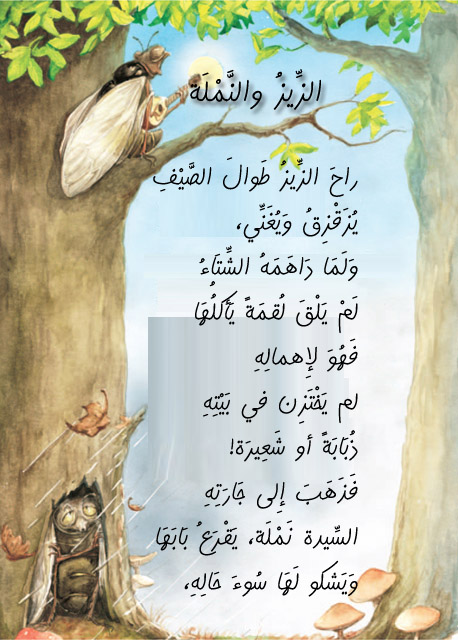 الزِّيزُ والنَّمْلَة
راحَ الزِّيزُ طَوالَ الصَّيْفِ
يُزَقْزِقُ وَيُغَنِّي،
وَلَمَا دَاهَمَهُ الشِّتاءُ
لَمْ يَلْقَ لُقمَةً يَأكلُهَا
فَهُوَ لإِهمالِهِ
لم يَخْتَزِن في بَيْتِهِ
ذُبَابَةً أو شَعِيرَة!
فَذَهَبَ إِلى جَارَتِهِ
السِّيرة نَمْلَة، يَقْرَعُ بَابَهَا
وَيَشكو لَهَا سُوءَ حَالِهِ،